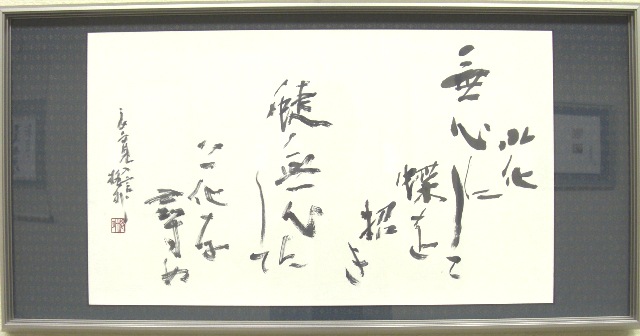 花
無心にして
蝶を
招き
蝶無心に
して
花を
尋ぬ
良寛